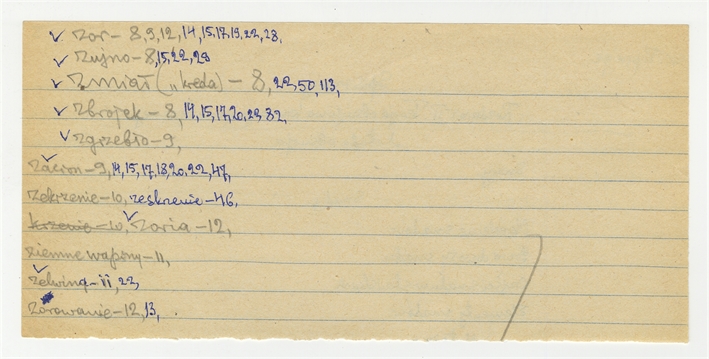 ✓ zor - 8, 9, 12, 14, 15, 17, 19, 22, 28,
✓ zujno - 8, 15, 22, 28
✓ zmiął („kreda) - 8, 22, 50, 113,
✓ zbrojek - 8, 14, 15, 17, 20, 23, 82,
✓ zgrzebło - 9,
✓ zacion - 9, 14, 15, 17, 18, 20, 22, 47,
zekrzenie - 10, zeskrzenie - 46,
krzenie - 10, ✓ zoria - 12,
ziemne wapory - 11,
✓ zelwina - 11, 23,
zorowanie - 12, 13,